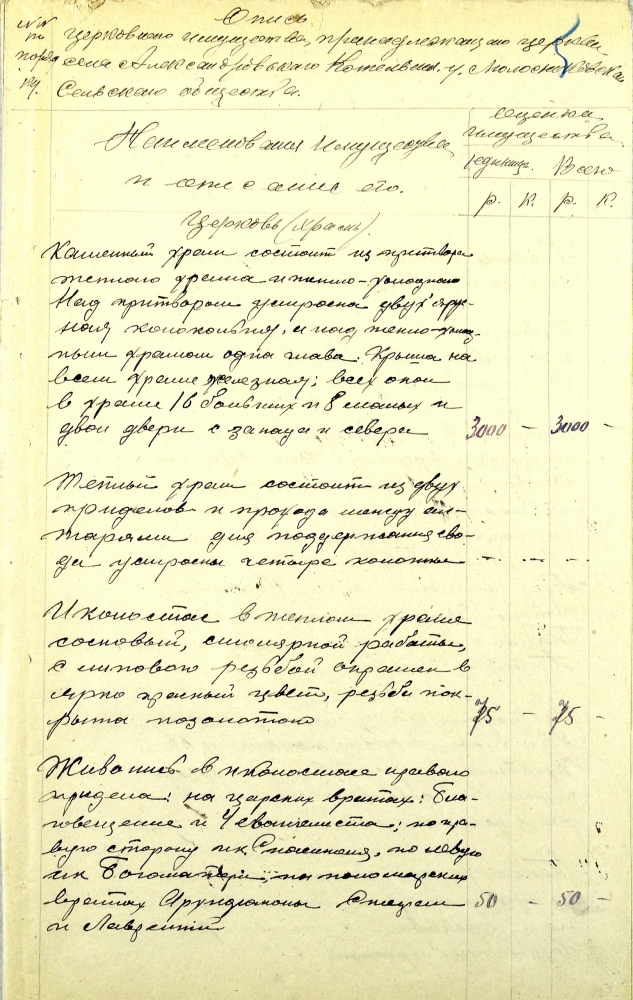 Опись
№№ по порядку.
церковного имущества, принадлежащаго церкви
села Александровскаго Котельнич. у. Молосниковскаго
Сельскаго общества.
Наименования имущества
и описание его.
оценка
имущества.
единицы. Всего
р. к. р. к.
Церковь (храм).
Каменный храм состоит из притвора
теплаго храма и тепло-холоднаго
Над притвором устроена двух ярус-
ная колокольня, и над тепло-холод-
ным храмом одна глава. Крыша на
всем храме железная; всех окон
в храме 16 больших и 8 малых и
двои двери с запада и севера 3000 – 3000 –
Теплый храм состоит из двух
приделов и прохода между ал-
тарями для поддержания сво-
да устроены четыре колонны – – – –
Иконостас в теплом храме
сосновый, столярной работы,
с липовою резьбой окрашен в
ярко красный цвет, резьба пок-
рыта позолотою 75 – 75 –
Живопись в иконостасе праваго
придела: на царских вратах: Бла-
говещение и 4 евангелиста; по пра-
вую сторону ик. Спасителя, по левую
ик. Богоматери; на пономарских
вратах Архидиаконы Стефан 50 – 50 –
и Лаврентий